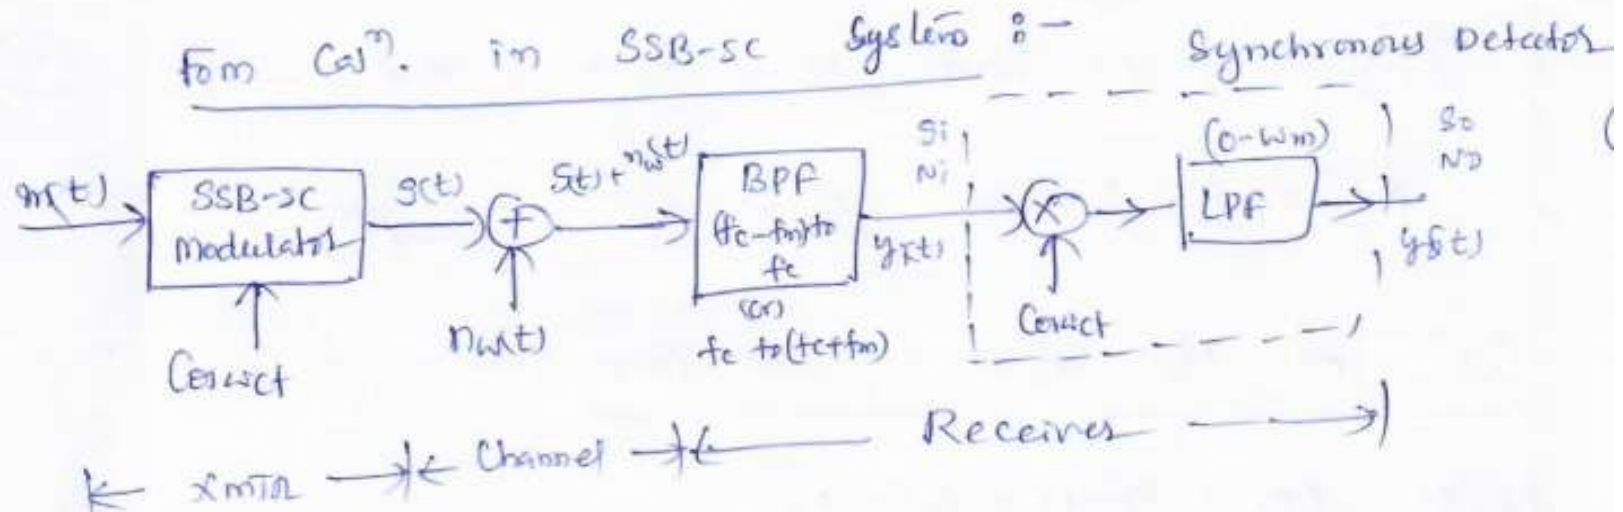 Fom Calⁿ. in SSB-SC System :-
Synchronous Detector
m(t)
SSB-SC
Modulator
s(t)
Coswct
+
nw(t)
s(t)+nw(t)
BPF
(fc-fm) to
fc
(or)
fc to (fc+fm)
Si
Ni
yi(t)
×
Coswct
(0-wm)
LPF
So
No
(
Xmtr
Channel
Receiver